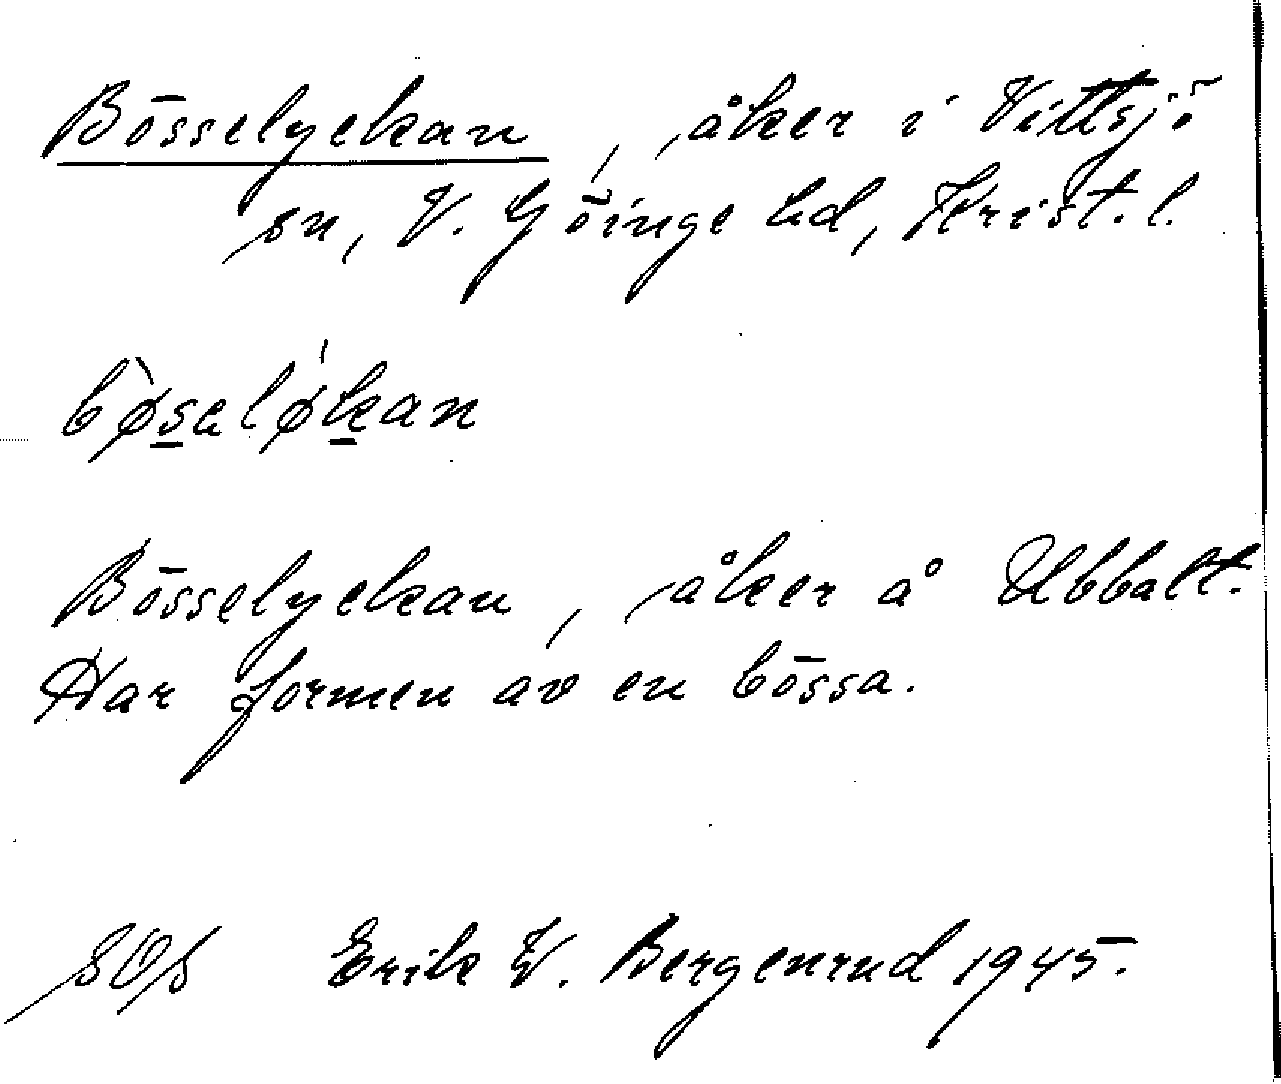 Bösselyckan, åker i Vittsjö
sn, V. Göinge hd, Krist. l.
bø̀salǿkan
Bösselyckan, åker å Ubbalt.
Har formen av en bössa.
SOS Erik W. Bergenrud 1945.